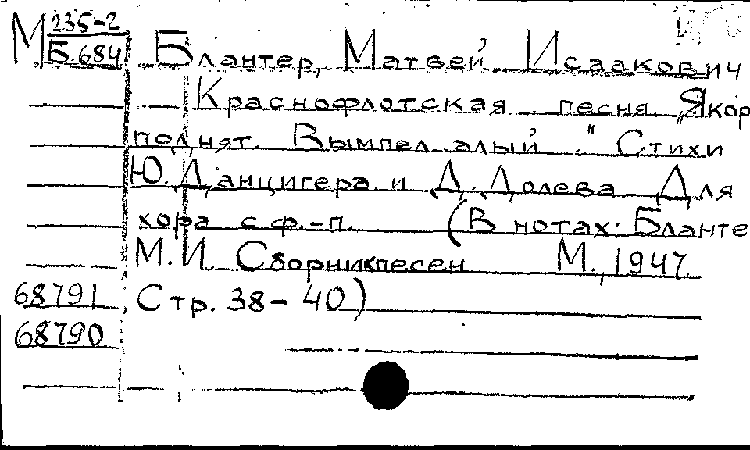 М 235-2
Б 684
Блантер, Матвей Исаакович
Краснофлотская песня „Якор
поднят. Вымпел алый." Стихи
Ю. Данцигера и Д. Долева Для
хора с ф.-п. (В нотах: Бланте
М.И. Сборник песен М., 1947.
68791 Стр. 38-40)
68790